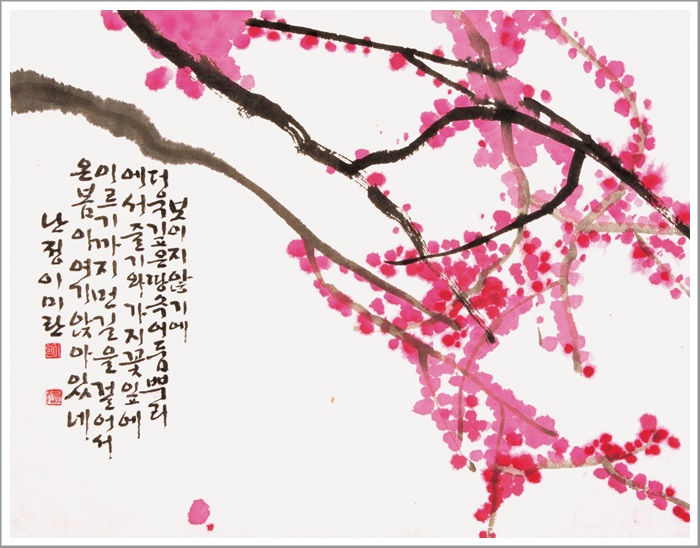 보이지않기에
더욱깊은땅속어둠뿌리
에서줄기와가지꽃잎에
이르기까지먼길을걸어서
온봄아여기앉아있네
난정이미란